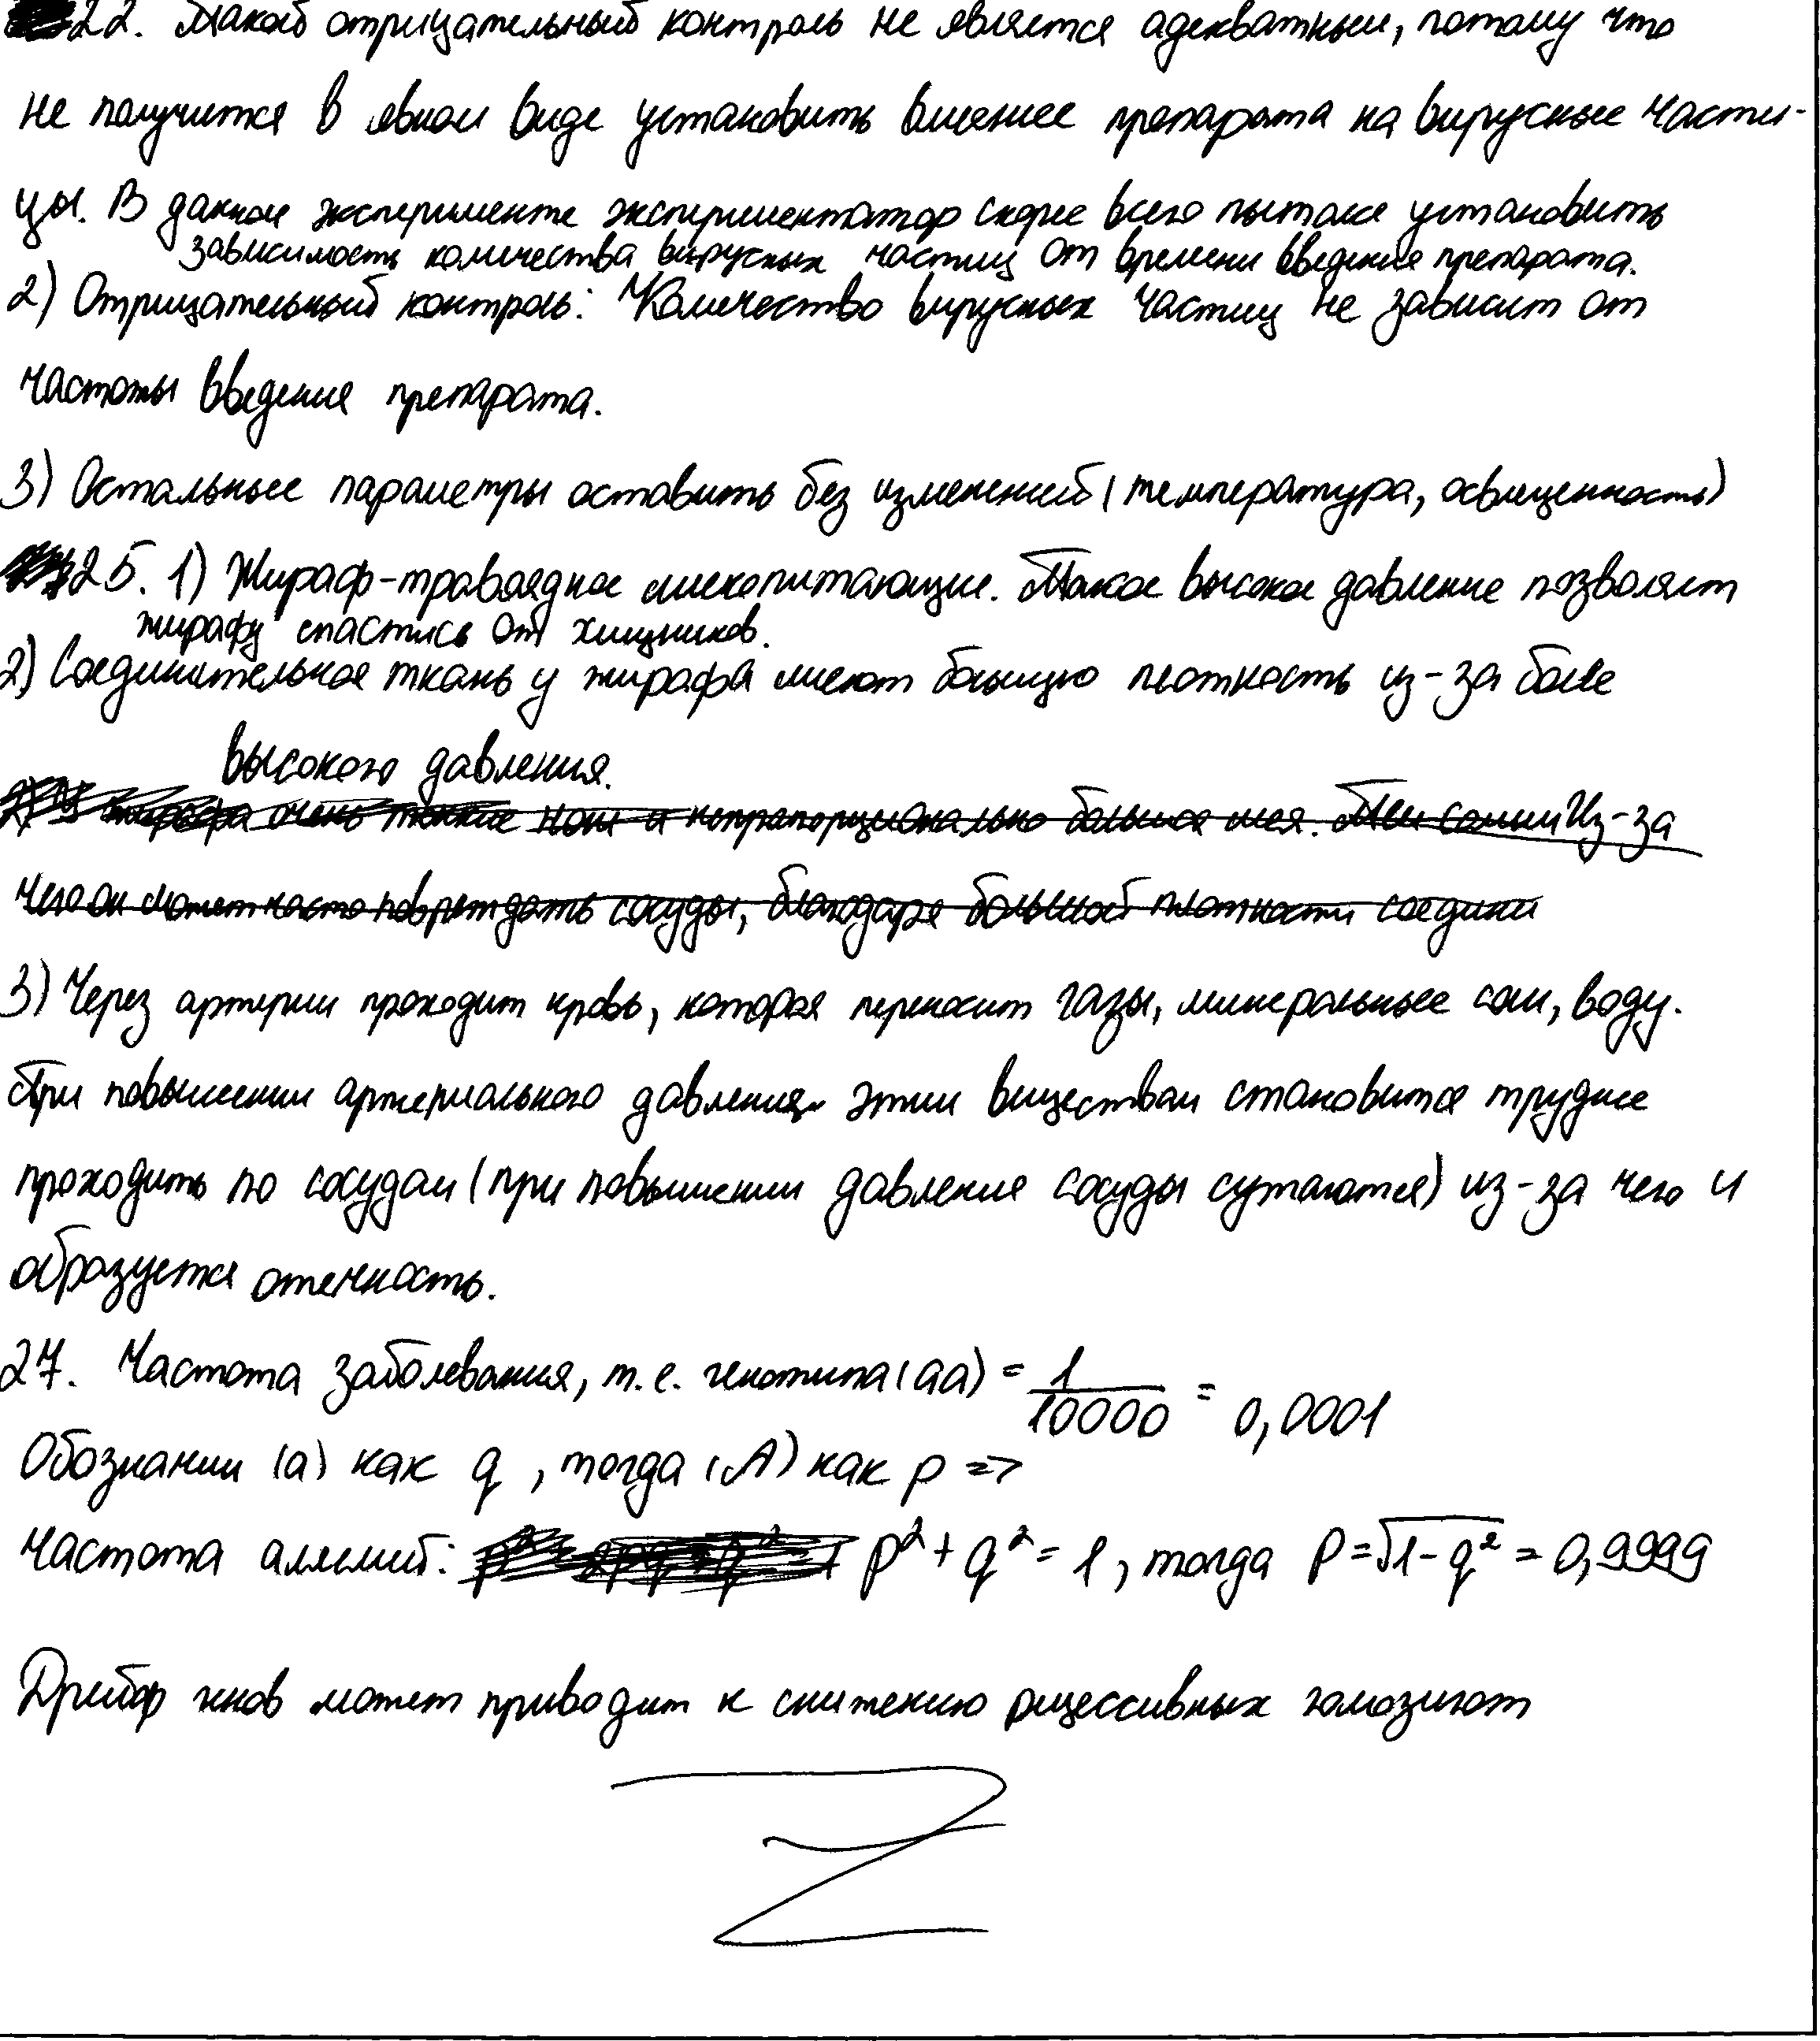 22. Такой отрицательный контроль не является адекватным, потому что
не получится в явном виде установить влияние препарата на вирусные части-
цы. В данном эксперименте экспериментатор скорее всего пытался установить
зависимость количества вирусных частиц от времени введения препарата.
2) Отрицательный контроль: Количество вирусных частиц не зависит от
частоты введения препарата.
3) Остальные параметры оставить без изменений (температура, освещенность)
25. 1) Жираф-травоядное млекопитающие. Такое высокое давление позволяет
жирафу спастись от хищников.
2) Соединительное ткань у жирафа имеют большую плотность из-за более
высокого давления.
2) У жирафа очень тонкие ноги и непропорционально большая шея. Из-за
чего он может часто повреждать сосуды, благодаря большой плотности соедини
3) Через артерии проходит кровь, которая переносит газы, минеральные соли, воду.
При повышении артериального давления этим веществам становится труднее
проходить по сосудам (при повышении давления сосуды сужаются) из-за чего и
образуется отечность.
27. Частота заболевания, т.е. генотипа (aa) = 1/10000 = 0,0001
Обозначим (a) как q, тогда (A) как p =>
Частота аллелей: p² + 2pq + q² = 1 p² + q² = 1, тогда p = √1 - q² = 0,9999
Дрейф генов может приводит к снижению рецессивных гомозигот
Z